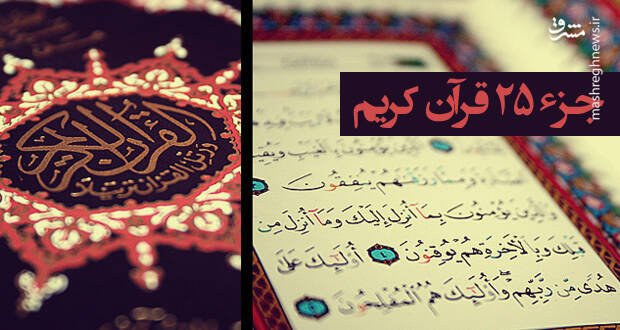 مشرق
mashreghnews.ir
جزء ۲۵ قرآن کریم
القرآن الكريم
ورتل القرآن ترتيلا
وَمِمَّا رَزَقْنَاهُمْ يُنْفِقُونَ
وَالَّذِينَ يُؤْمِنُونَ بِمَا أُنْزِلَ إِلَيْكَ وَمَا أُنْزِلَ مِنْ
قَبْلِكَ وَبِالْآخِرَةِ هُمْ يُوقِنُونَ ٤ أُولَئِكَ عَلَى
هُدًى مِنْ رَبِّهِمْ وَأُولَئِكَ هُمُ الْمُفْلِحُونَ ٥